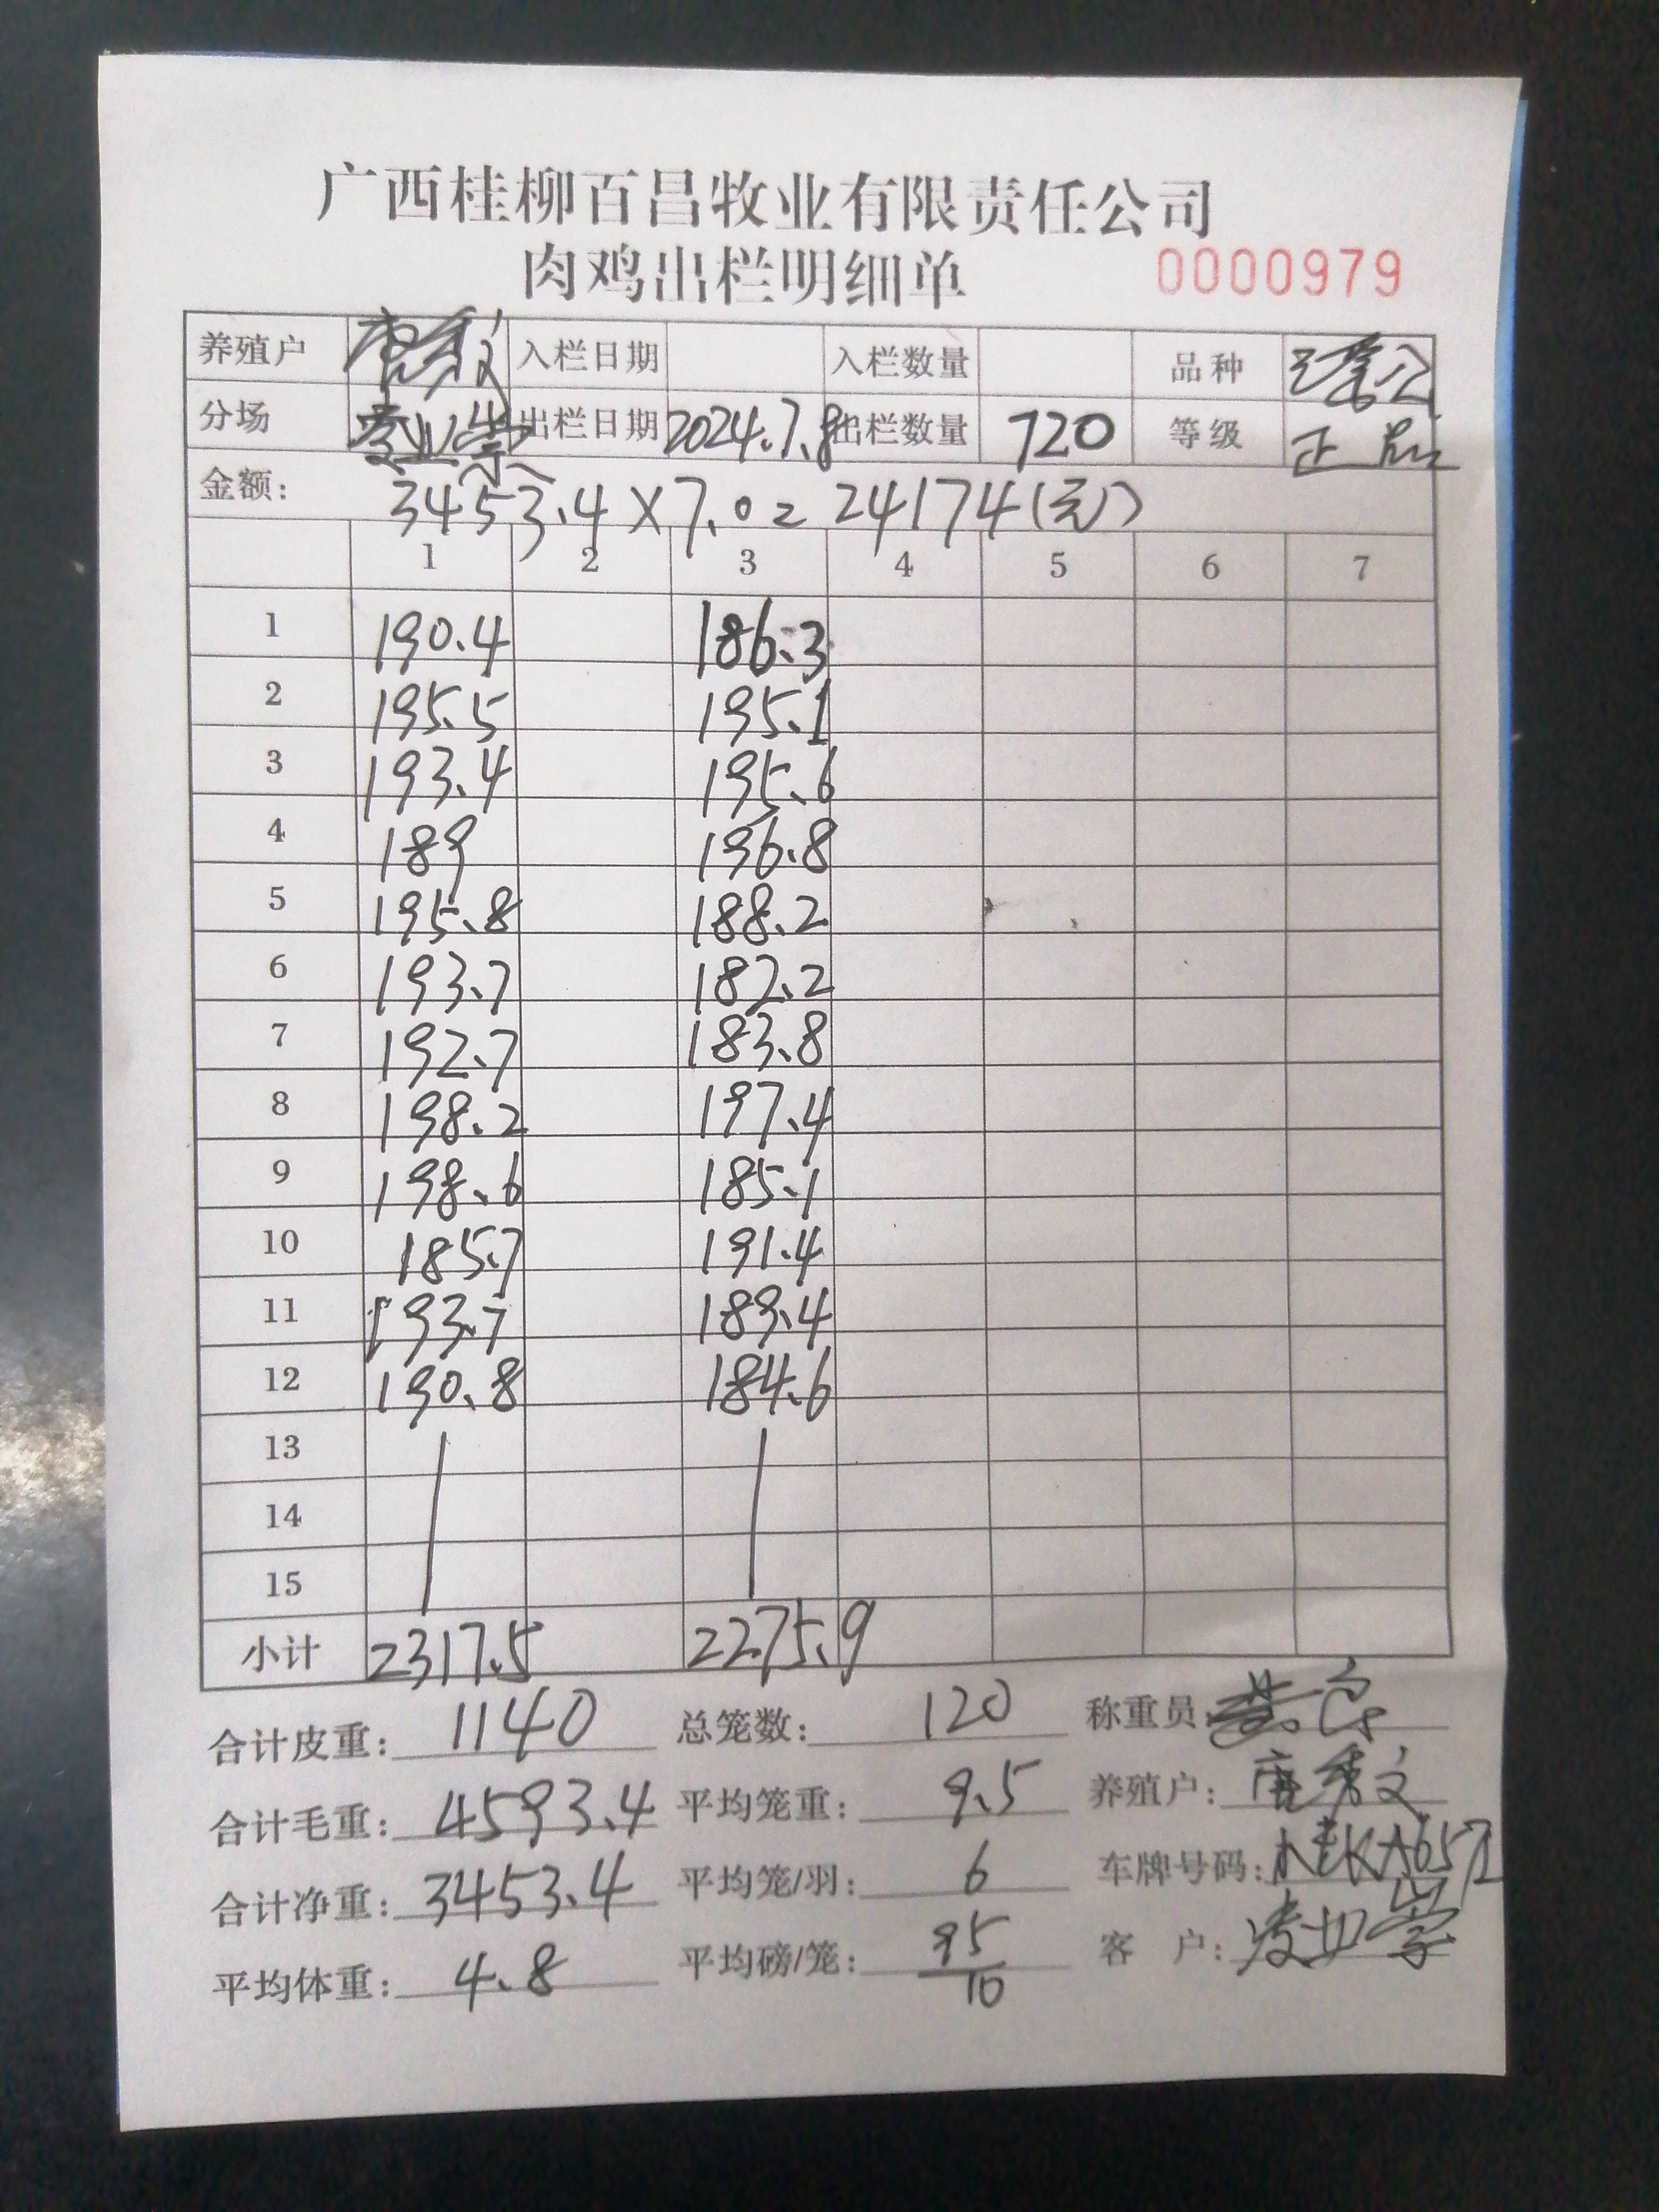 广西桂柳百昌牧业有限责任公司
肉鸡出栏明细单 0000979
养殖户 唐秀文 入栏日期 入栏数量 品种
分场 出栏日期 2024.7.8 出栏数量 720 等级 正品
金额: 3453.4×7.0=24174(元)
1 2 3 4 5 6 7
1 190.4 186.3
2 195.5 195.1
3 193.4 195.6
4 189 196.8
5 195.8 188.2
6 193.7 182.2
7 192.7 183.8
8 198.2 197.4
9 198.6 185.1
10 185.7 191.4
11 193.7 189.4
12 190.8 184.6
13
14
15
小计 2317.5 2275.9
合计皮重: 1140 总笼数: 120 称重员
合计毛重: 4593.4 平均笼重: 9.5 养殖户: 唐秀文
合计净重: 3453.4 平均笼/羽: 6 车牌号码:
平均体重: 4.8 平均磅/笼: 95/10 客 户: